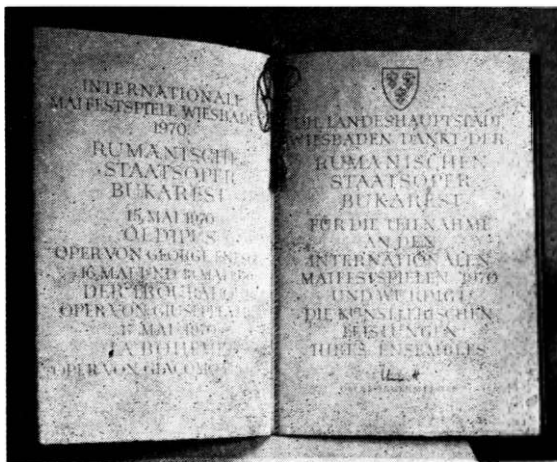 INTERNATIONALE
MAIFESTSPIELE WIESBADE
1970
RUMÄNISCHE
STAATSOPER
BUKAREST
15. MAI 1970
ÖLDIPUS
OPER VON GEORGE ENESC
16. MAI UND
DER TROUBAD
OPER VON GIUSEPPE
17. MAI 1970
LA BOHEME
OPER VON GIACOMO
DIE LANDESHAUPTSTADT
WIESBADEN DANKT DER
RUMÄNISCHEN
STAATSOPER
BUKAREST
FÜR DIE TEILNAHME
AN DEN
INTERNATIONALEN
MAIFESTSPIELEN 1970
UND WÜRDIGT
DIE KÜNSTLERISCHEN
LEISTUNGEN
IHRES ENSEMBLES